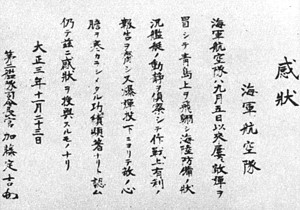 感状
海軍航空隊
海軍航空隊ハ九月五日以来屡敵弾ヲ
冒シテ青島上ヲ飛翔シ海陸防備ノ状
況艦艇ノ動静ヲ偵察シテ作戦上有利ノ
報告ヲ齎シ又爆弾投下ニヨリテ敵ノ心
膽ヲ寒カラシメタル功績顕著ナリト認ム
仍テ茲ニ感状ヲ授與スルモノナリ
大正三年十一月二十三日
第二艦隊司令長官加藤定吉